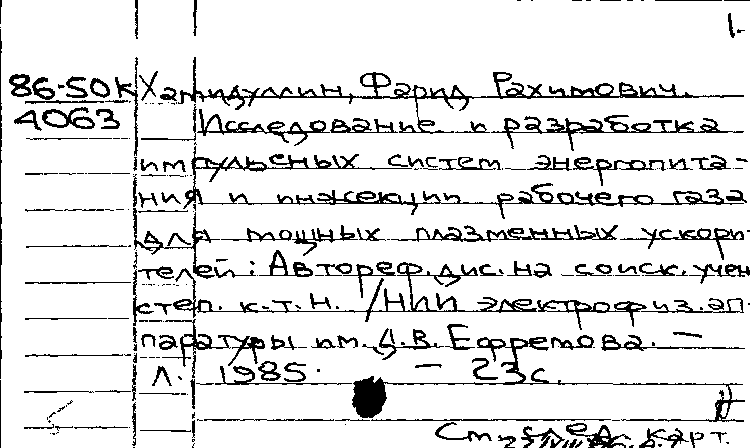 1.
86-50К Хамидуллин, Фарид Рахимович.
4063 Исследование и разработка
импульсных систем энергопита-
ния и инжекции рабочего газа
для мощных плазменных ускори-
телей: Автореф. дис. на соиск. учен
степ. к.т.н. /НИИ электрофиз. ап-
паратуры им. Д.В. Ефремова. —
Л. 1985. — 23с.
См. след. карт.